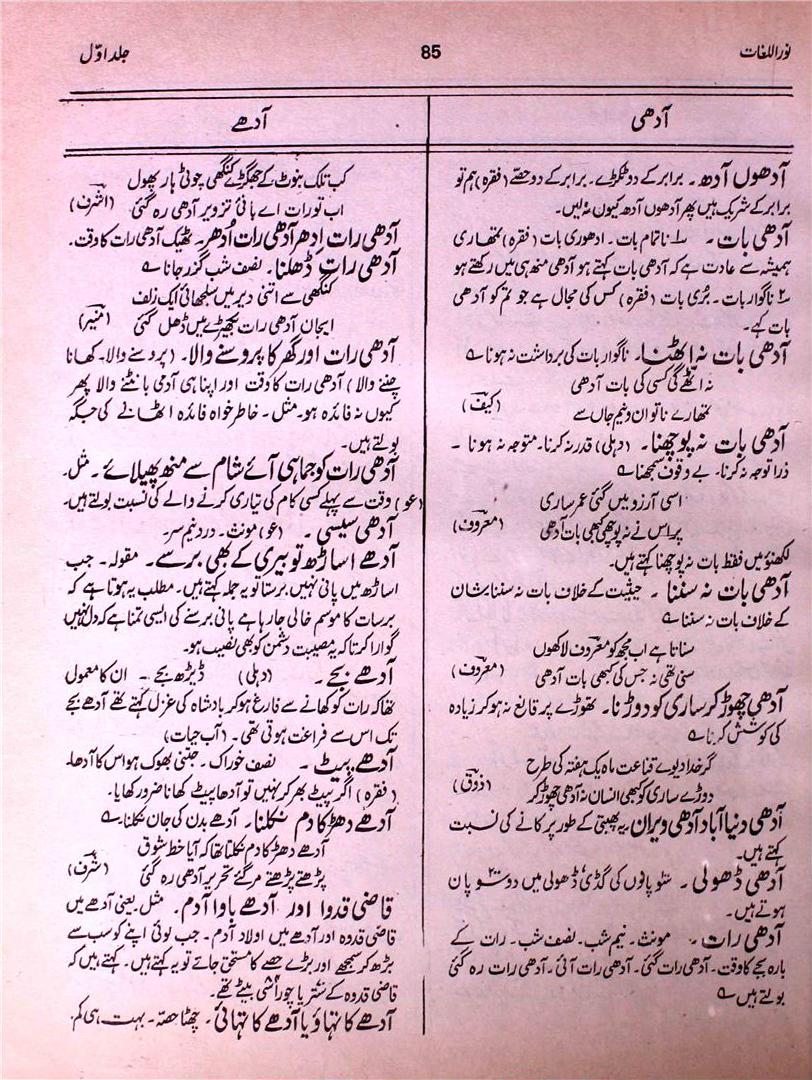 نور اللغات
85
جلد اوّل
آدھی
آدھے
آدھوں آدھ۔ برابر کے دو ٹکڑے۔ برابر کے دو حصے (فقرہ) ہم تو
برابر کے شریک ہیں پھر آدھوں آدھ کیوں نہ لیں۔
آدھی بات۔ ۱۔ ناتمام بات۔ ادھوری بات (فقرہ) تمھاری
ہمیشہ سے عادت ہے کہ آدھی بات کہتے ہو آدھی منھ ہی میں رکھتے ہو
۲۔ ناگوار بات۔ بُری بات (فقرہ) کس کی مجال ہے جو تم کو آدھی
بات کہے۔
آدھی بات نہ اُٹھنا۔ ناگوار بات کی برداشت نہ ہونا ؎
نہ اٹھے گی کسی کی بات آدھی
تمھارے ناتوان و نیم جاں سے (کیف)
آدھی بات نہ پوچھنا۔ (دہلی) قدر نہ کرنا۔ متوجہ نہ ہونا۔
ذرا توجہ نہ کرنا۔ بے وقوف سمجھنا ؎
اسی آرزو میں گئی عمر ساری
پر اس نے نہ پوچھی کبھی بات آدھی (معروف)
لکھنؤ میں فقط بات نہ پوچھنا کہتے ہیں۔
آدھی بات نہ سننا۔ حیثیت کے خلاف بات نہ سننا شان
کے خلاف بات نہ سننا ؎
سناتا ہے اب مجھ کو معروف لاکھوں
سنی تھی نہ جس کی کبھی بات آدھی (معروف)
آدھی چھوڑ کر ساری کو دوڑنا۔ تھوڑے پر قانع نہ ہو کر زیادہ
کی کوشش کرنا ؎
گر خدا دیوے قناعت ماہ یک ہفتہ کی طرح
دوڑے ساری کو کبھی انسان نہ آدھی چھوڑ کر (ذوق)
آدھی دنیا آباد آدھی ویران۔ یہ پھبتی کے طور پر کانے کی نسبت
کہتے ہیں۔
آدھی ڈھولی۔ سَو پانوں کی گڈی ڈھولی میں دو سَو ۲۰۰ پان
ہوتے ہیں۔
آدھی رات۔ مونث۔ نیم شب۔ نصف شب۔ رات کے
بارہ بجے کا وقت۔ آدھی رات گئی۔ آدھی رات آئی۔ آدھی رات رہ گئی
بولتے ہیں ؎
کب تلک بنوٹ کے جھگڑے کنگھی چوٹی ہار پھول
اب تو رات اے بانی تزویر آدھی رہ گئی (اشرف)
آدھی رات اِدھر آدھی رات اُدھر۔ ٹھیک آدھی رات کا وقت۔
آدھی رات ڈھلنا۔ نصف شب گزر جانا ؎
کنگھی سے اتنی دیر میں سلجھائی ایک زلف
اے جان آدھی رات بکھیڑے میں ڈھل گئی (منیر)
آدھی رات اور گھر کا پروسنے والا۔ (پروسنے والا۔ کھانا
چننے والا) آدھی رات کا وقت اور اپنا ہی آدمی بانٹنے والا پھر
کیوں نہ فائدہ ہو۔ مثل۔ خاطر خواہ فائدہ اٹھانے کی جگہ
بولتے ہیں۔
آدھی رات کو جماہی آئے شام سے منھ پھیلائے۔ مثل۔
(عو) وقت سے پہلے کسی کام کی تیاری کرنے والے کی نسبت بولتے ہیں۔
آدھی سیسی۔ (عو) مونث۔ درد نیم سر۔
آدھے اساڑھ تو بیری کے بھی برسے۔ مقولہ۔ جب
اساڑھ میں پانی نہیں برستا تو یہ جملہ کہتے ہیں۔ مطلب یہ ہوتا ہے کہ
برسات کا موسم خالی جا رہا ہے پانی برسنے کی ایسی تمنا ہے کہ دل نہیں
گوارا کرتا کہ یہ مصیبت دشمن کو بھی نصیب ہو۔
آدھے بجے۔ (دہلی) ڈیڑھ بجے۔ ان کا معمول
تھا کہ رات کو کھانے سے فارغ ہو کر بادشاہ کی غزل کہتے تھے آدھے بجے
تک اس سے فراغت ہوتی تھی۔ (آب حیات)
آدھے پیٹ۔ نصف خوراک۔ جتنی بھوک ہو اس کا آدھا۔
(فقرہ) اگر پیٹ بھر کر نہیں تو آدھا پیٹ کھانا ضرور کھایا۔
آدھے دھڑ کا دم نکلنا۔ آدھے بدن کی جان نکلنا۔ ؎
آدھے دھڑ کا دم نکلتا تھا کہ آیا خط شوق
پڑھتے پڑھتے مر گئے تحریر آدھی رہ گئی (شرف)
قاضی قدوا اور آدھے باوا آدم۔ مثل۔ یعنی آدھے میں
قاضی قدوہ اور آدھے میں اولاد آدم۔ جب کوئی اپنے کو سب سے
بڑھ کر سمجھے اور بڑے حصے کا مستحق جانے تو یہ کہتے ہیں۔ کہتے ہیں کہ
قاضی قدوہ کے ستّر یا چوراسی بیٹے تھے۔
آدھے کا تہاؤ یا آدھے کا تہائی۔ چھٹا حصہ۔ بہت ہی کم۔